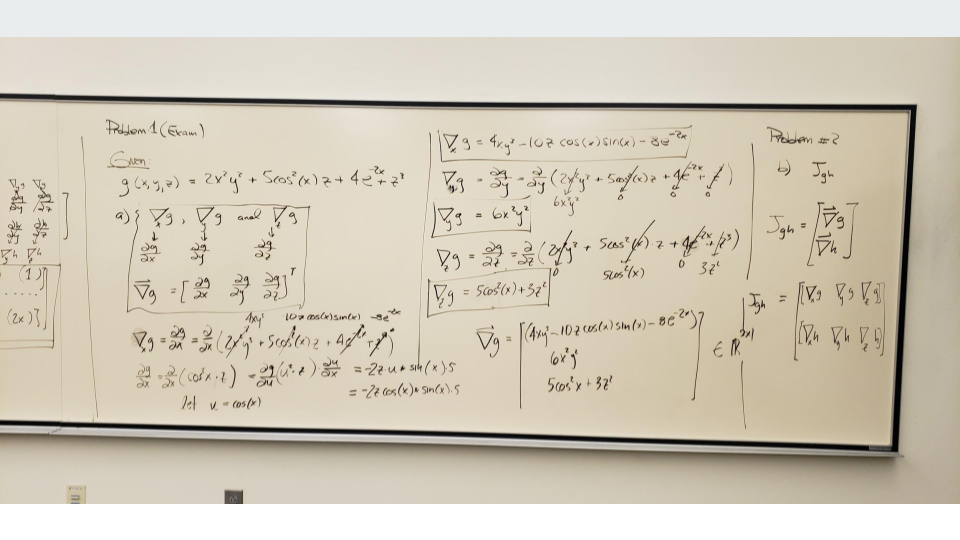 ∇ₓg ∇ᵧg
(1)]
.....
(2x)}]
Problem 1 (Exam)
Given:
g(x,y,z) = 2x²y³ + 5cos²(x)z + 4e⁻²ˣ + z³
a) { ∇ₓg, ∇ᵧg and ∇_z g
↓ ↓ ↓
∂g/∂x ∂g/∂y ∂g/∂z
∇⃗g = [∂g/∂x ∂g/∂y ∂g/∂z]ᵀ
4xy³ 10z cos(x)sin(x) -8e⁻²ˣ
∇ₓg = ∂g/∂x = ∂/∂x (2x²y³ + 5cos²(x)z + 4e⁻²ˣ + z³)
∂g/∂x = ∂/∂x (cos²x·z) = ∂g/∂u (u²·z)·∂u/∂x = -2z·u * sin(x)·5
let u = cos(x) = -2z cos(x) * sin(x)·5
∇ₓg = 4xy³ - 10z cos(x)sin(x) - 8e⁻²ˣ
∇ᵧg = ∂g/∂y = ∂/∂y (2x²y³ + 5cos²(x)z + 4e⁻²ˣ + z³)
6x²y² 0 0 0
∇ᵧg = 6x²y²
∇_z g = ∂g/∂z = ∂/∂z (2x²y³ + 5cos²(x)·z + 4e⁻²ˣ + z³)
0 5cos²(x) 0 3z²
∇_z g = 5cos²(x) + 3z²
∇⃗g = [(4xy³ - 10z cos(x)sin(x) - 8e⁻²ˣ)
6x²y²
5cos²x + 3z²] ∈ ℝ³ˣ¹
Problem #2
b) J_gh
J_gh = [∇⃗g
∇⃗h]
J_gh = [[∇ₓg ∇ᵧg ∇_z g]
[∇ₓh ∇ᵧh ∇_z h]]